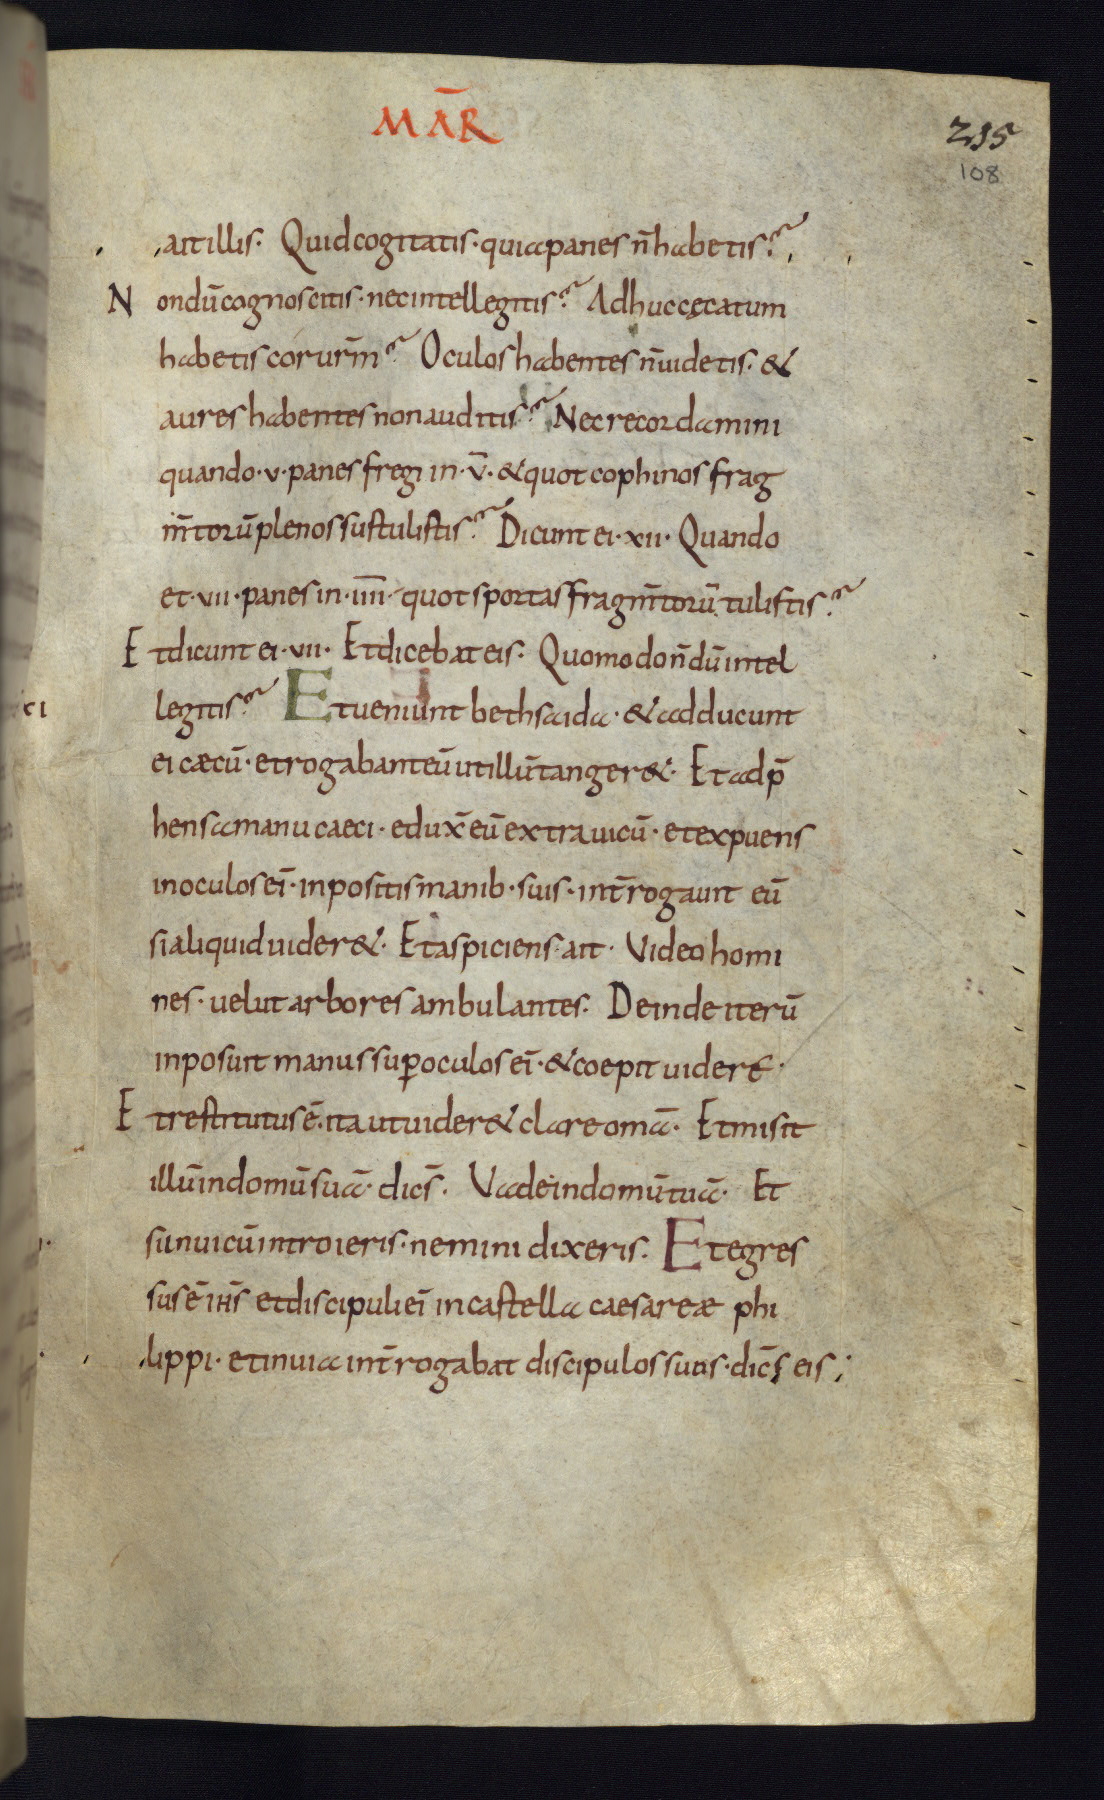 MAR̄
215
108
ait illis. Quid cogitatis· quia panes n̄ habetis?
Nondū cognoscitis· nec intellegitis? Adhuc cęcatum
habetis cor ur̄m? Oculos habentes n̄ uidetis· &
aures habentes non auditis? Nec recordamini
quando· v· panes fregi in· v̄· & quot cophinos frag
m̄torū plenos sustulistis? Dicunt ei· xii· Quando
et· vii· panes in· iiii̅· quot sportas fragm̄torū tulistis?
Et dicunt ei· vii· Et dicebat eis. Quomodo n̄dū intel
legitis? Et ueniunt bethsaida· & adducunt
ei cæcū· et rogabant eū ut illū tanger&· Et adp̄
hensa manu caeci· edux̄ eū extra uicū· et expuens
in oculos ei̅· inpositis manib· suis· int̄rogauit eū
si aliquid uider&· Et aspiciens ait· Video homi
nes· uelut arbores ambulantes. Deinde iterū
inposuit manus sup̱ oculos ei̅· & coepit uidere·
Et restitutus ē· ita ut uider& clare om̄a· Et misit
illū in domū suā· dic̄s· Vade in domū tuā· Et
si in uicū introieris· nemini dixeris. Et egres
sus ē ih̄s et discipuli ei̅ in castella caesareæ phi
lippi· et in uia int̄rogabat discipulos suos· dic̄s eis;